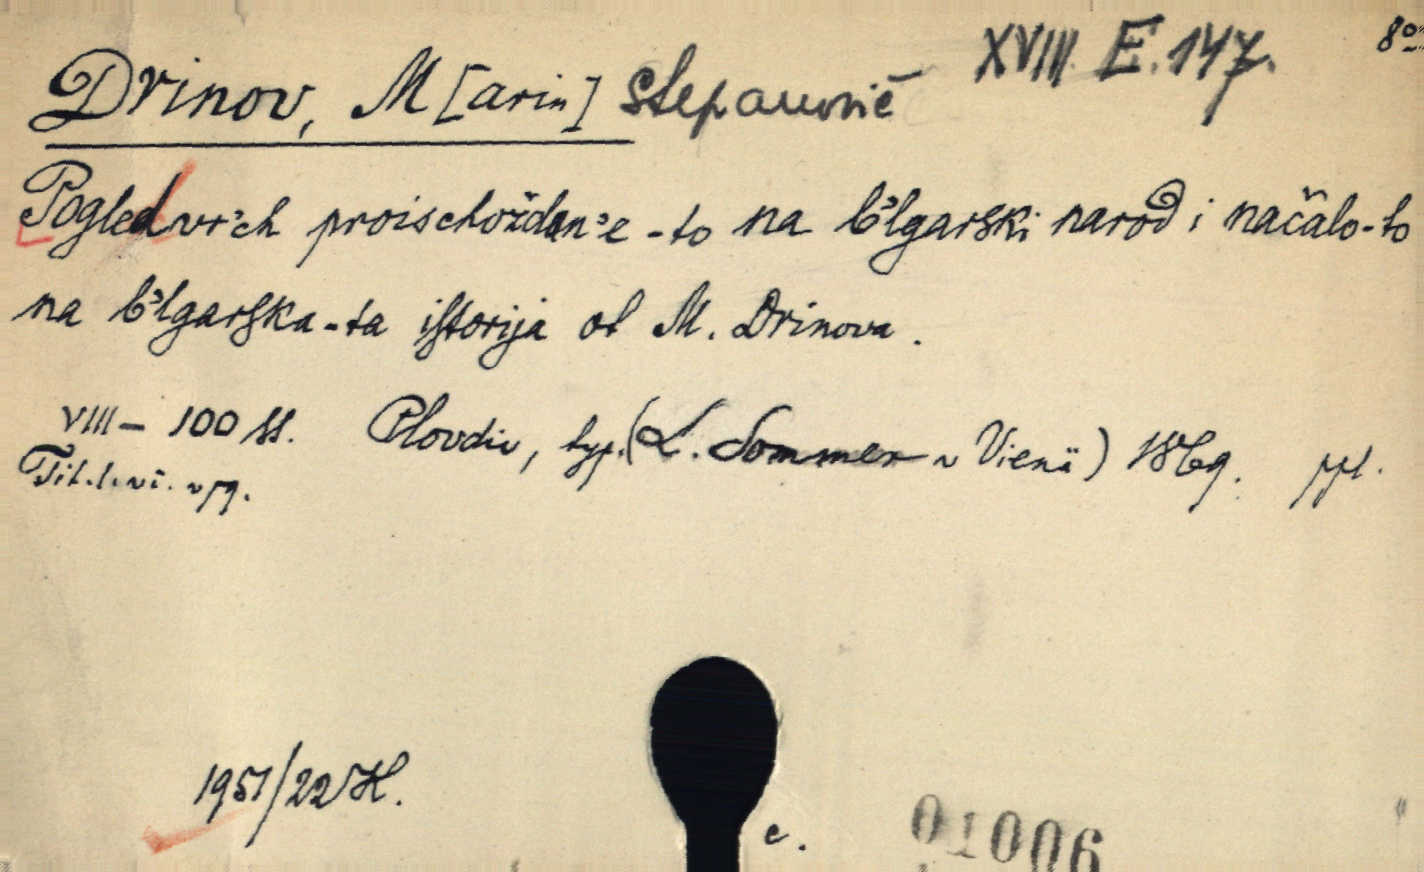 XVIII E.147. 8°
Drinov, M[arin] Stepanovič
Pogled vr'ch proischoždan'e-to na b'lgarski narod i načalo-to
na b'lgarska-ta istorija ot M. Drinova.
VIII – 100 ss. Plovdiv, typ. (L. Sommer v Vienă) 1869. ppl.
Tit. l. vĭ. vpg.
1951/22 H.
c.
01006